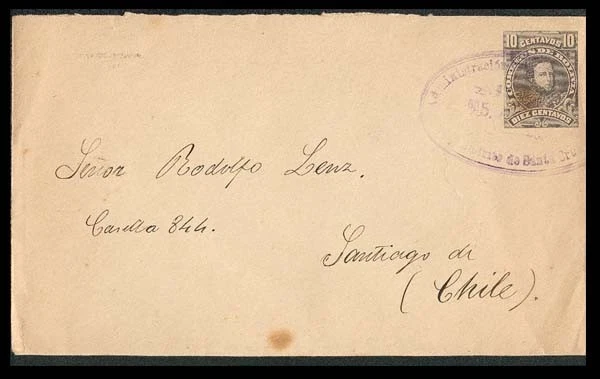 10 CENTAVOS 10
CORREOS DE BOLIVIA
DIEZ CENTAVOS
Administración
de Santa Cru
Señor Rodolfo Lenz.
Casilla 844.
Santiago de
(Chile).